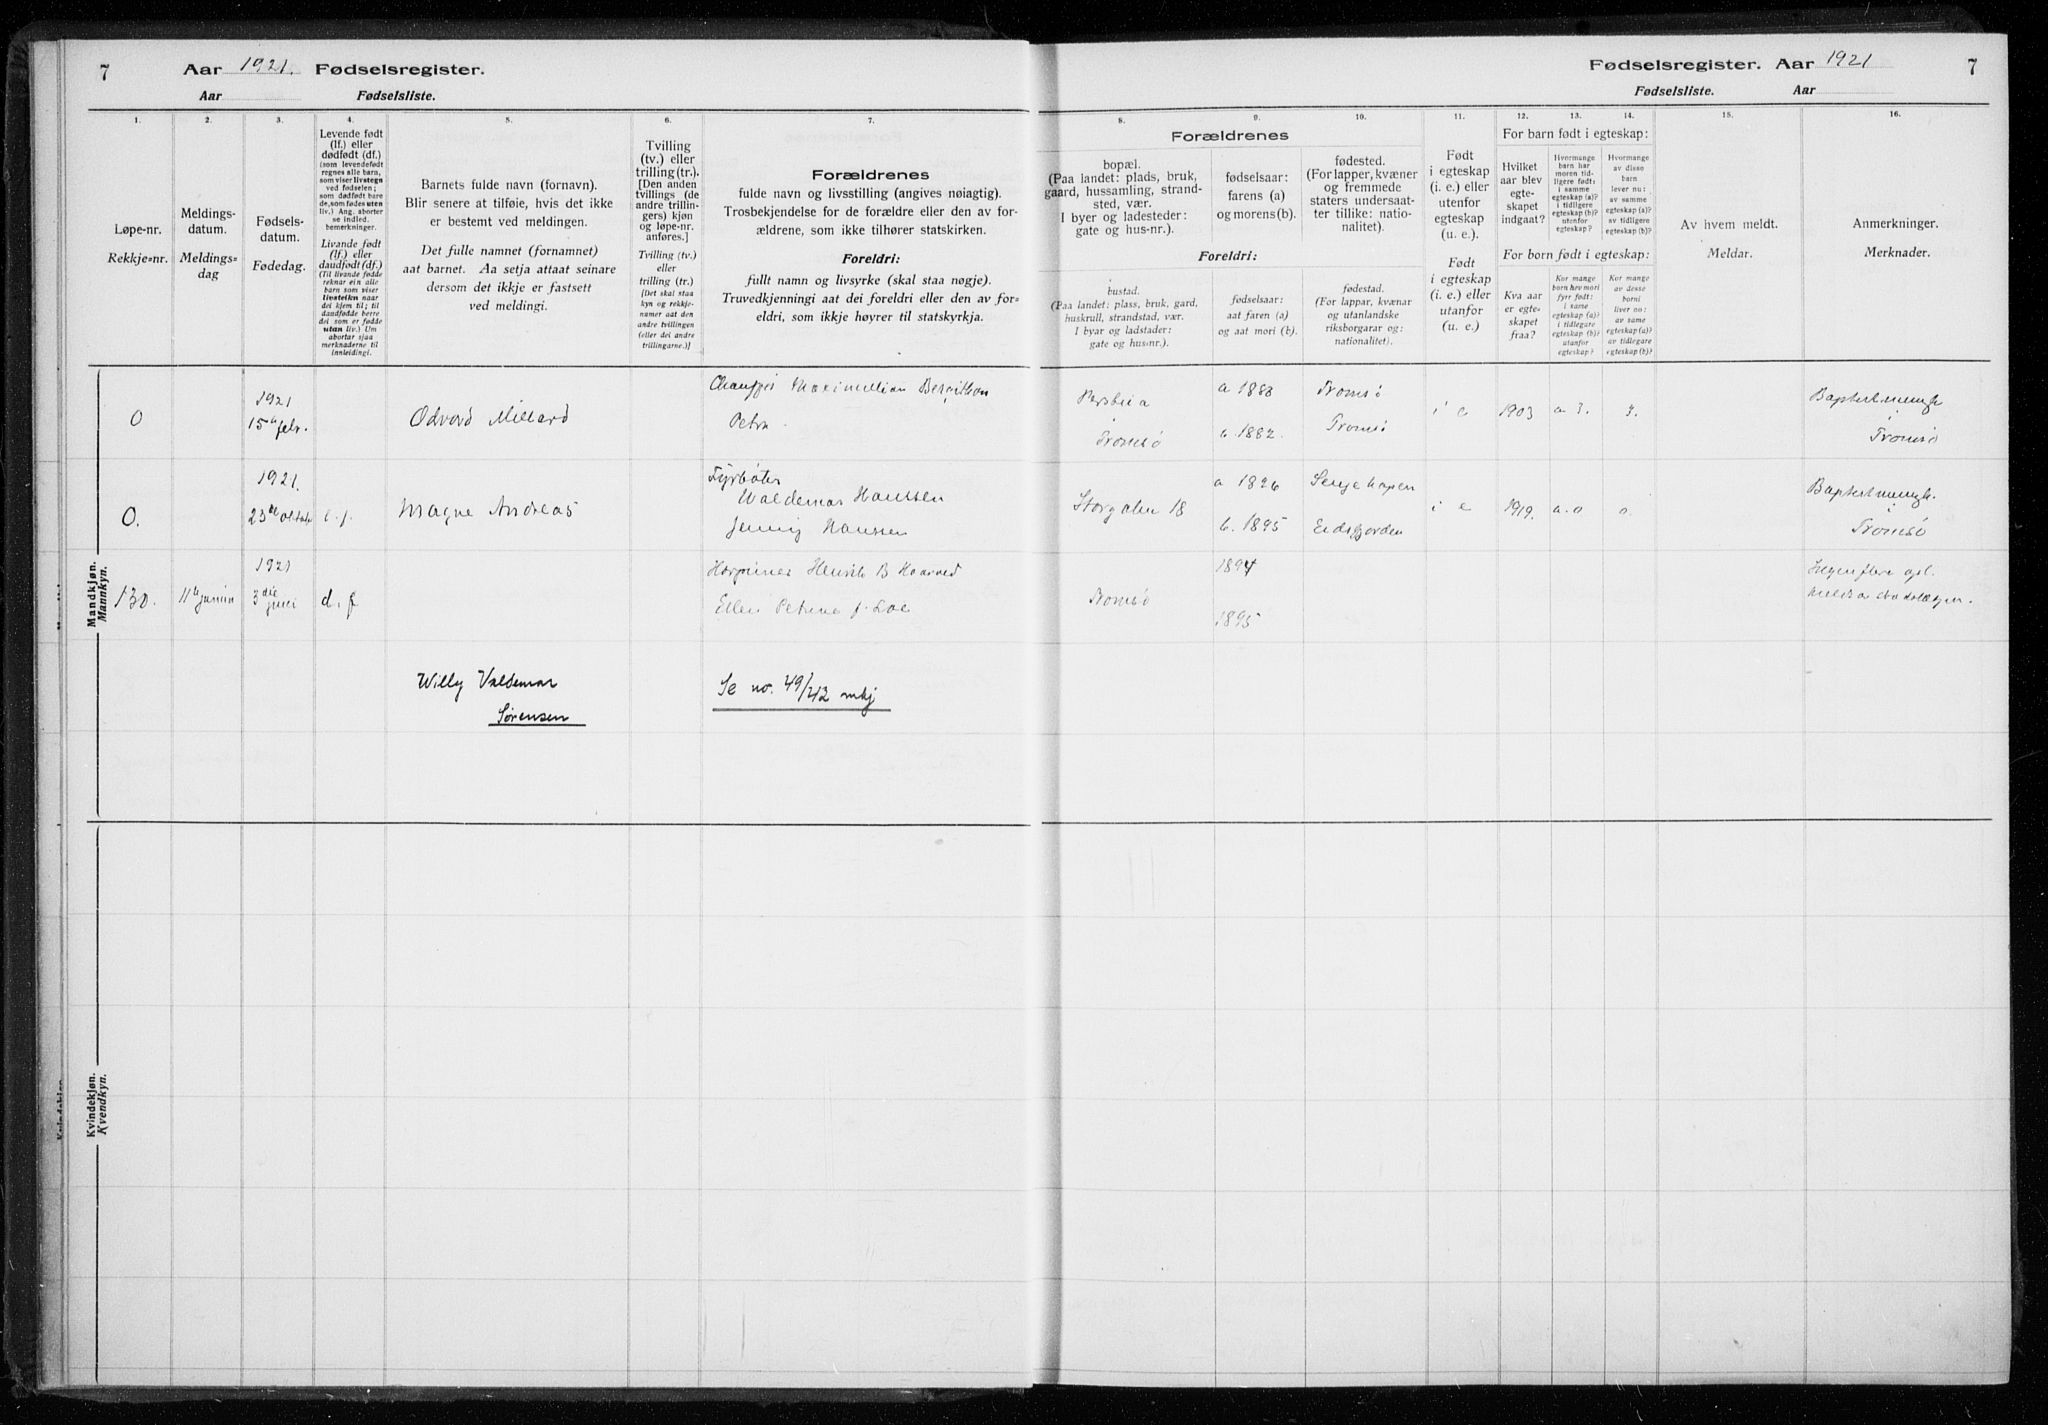 7 Aar 1921. Fødselsregister.
Aar Fødselsliste.
Fødselsregister. Aar 1921 7
Fødselsliste. Aar
1. 2. 3. 4. 5. 6. 7.
Løpe-nr.
Rekkje-nr.
Meldings-
datum.
Meldings-
dag
Fødsels-
datum.
Fødedag.
Levende født
(lf.) eller
dødfødt (df.)
(som levendefødt
regnes alle barn,
som viser livstegn
ved fødselen;
som dødfødt bare
de, som fødes uten
liv.) Ang. aborter
se indled.
bemerkninger.
Livande fødd
(lf.) eller
daudfødd (df.)
(Til livande fødde
reknar ein alle
barn som viser
livsteikn naar
dei kjem til; til
daudfødde berre
dei som er fødde
utan liv.) Um
abortar sjaa
merknaderne til
innleidingi.
Barnets fulde navn (fornavn).
Blir senere at tilføie, hvis det ikke
er bestemt ved meldingen.
Det fulle namnet (fornamnet)
aat barnet. Aa setja attaat seinare
dersom det ikkje er fastsett
ved meldingi.
Tvilling
(tv.) eller
trilling (tr.).
[Den anden
tvillings (de
andre trillin-
gers) kjøn
og løpe-nr.
anføres.]
Tvilling (tv.)
eller
trilling (tr.)
[Det skal staa
kyn og rekkje-
numer aat den
andre tvillingen
(eller dei andre
trillingarne.)]
Forældrenes
fulde navn og livsstilling (angives nøiagtig).
Trosbekjendelse for de forældre eller den av for-
ældrene, som ikke tilhører statskirken.
Foreldri:
fullt namn og livsyrke (skal staa nøgje).
Truvedkjenningi aat dei foreldri eller den av for-
eldri, som ikkje høyrer til statskyrkja.
8. 9. 10. 11. 12. 13. 14. 15. 16.
Forældrenes
bopæl.
(Paa landet: plads, bruk,
gaard, hussamling, strand-
sted, vær.
I byer og ladesteder:
gate og hus-nr.).
fødselsaar:
farens (a)
og morens (b).
fødested.
(For lapper, kvæner
og fremmede
staters undersaat-
ter tillike: natio-
nalitet).
Foreldri:
bustad.
(Paa landet: plass, bruk, gard,
huskrull, strandstad, vær.
I byar og ladstader:
gate og hus-nr.).
fødselsaar:
aat faren (a)
og aat mori (b).
fødestad.
(For lappar, kvænar
og utanlandske
riksborgarar og:
nationalitet).
Født
i egteskap
(i. e.) eller
utenfor
egteskap
(u. e.).
Født
i egteskap
(i. e.) eller
utanfor
(u. e.).
For barn født i egteskap:
Hvilket
aar blev
egte-
skapet
indgaat?
Hvormange
barn har
moren tid-
ligere født:
i samme
egteskap (a)?
i tidligere
egteskap (b)?
utenfor
egteskap?
Hvormange
av disse
barn
lever nu:
av samme
egteskap (a)?
av tidligere
egteskap (b)?
For born født i egteskap:
Kva aar
er egte-
skapet
fraa?
Kor mange
born hev mori
fyrr født:
i same
egteskap (a)?
i tidlegare
egteskap (b)?
utanfor
egteskap?
Kor mange
av desse
borni
liver no:
av same
egteskap (a)?
av tidlegare
egteskap (b)?
Av hvem meldt.
Meldar.
Anmerkninger.
Merknader.
Mandkjøn.
Mannkyn.
0 1921 15de febr. Odvard Millard
Maximillian Berntsen
Petra
Tromsø
a 1883
b. 1882.
Tromsø
Tromsø
i e 1903 a 3. 3.
Baptistmenigh
Tromsø
0. 1921. 23de oktober l. f. Magne Andreas
Fyrbøter
Waldemar Hanssen
Jenny Hanssen
Storgaten 18
a 1896
b. 1895
Eidsfjorden
i e 1919. a. 0 0.
Baptistmenigh.
Tromsø
130. 11te juni 1921 3die juni d. f
Henrik B
Ellen Petrine f.
Tromsø
1894
1895
Willy Valdemar
Sørensen
Se no. 49/42 mkj
Kvindekjøn.
Kvendkyn.